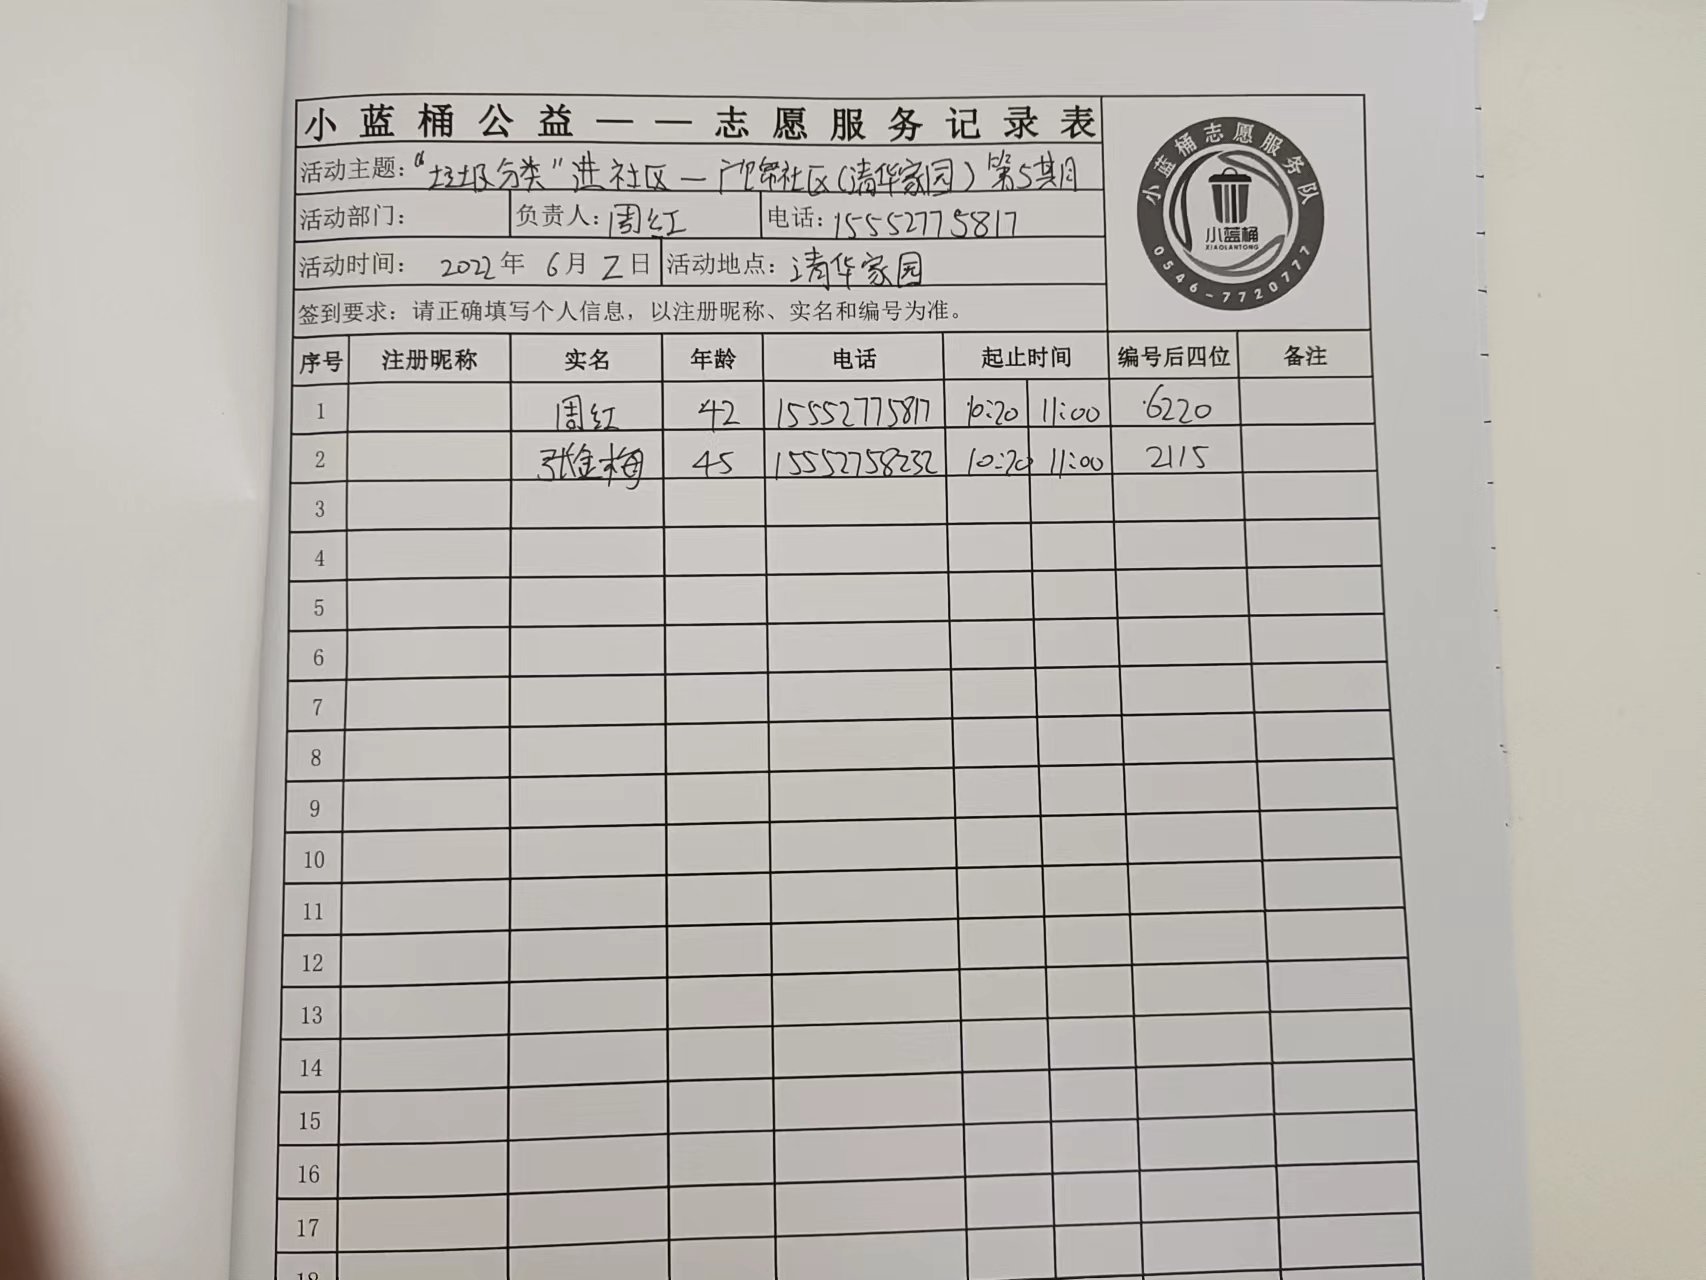 小蓝桶公益——志愿服务记录表
活动主题：“垃圾分类”进社区—社区（清华家园）第5期
活动部门： 负责人：周红 电话：15552775817
活动时间： 2022年 6月 2日 活动地点：清华家园
签到要求：请正确填写个人信息，以注册昵称、实名和编号为准。
小蓝桶志愿服务队
小蓝桶
XIAOLANTONG
0546-7720777
序号 注册昵称 实名 年龄 电话 起止时间 编号后四位 备注
1 周红 42 15552775817 10:20 11:00 6220
2 张金梅 45 15552758232 10:20 11:00 2115
3
4
5
6
7
8
9
10
11
12
13
14
15
16
17
18